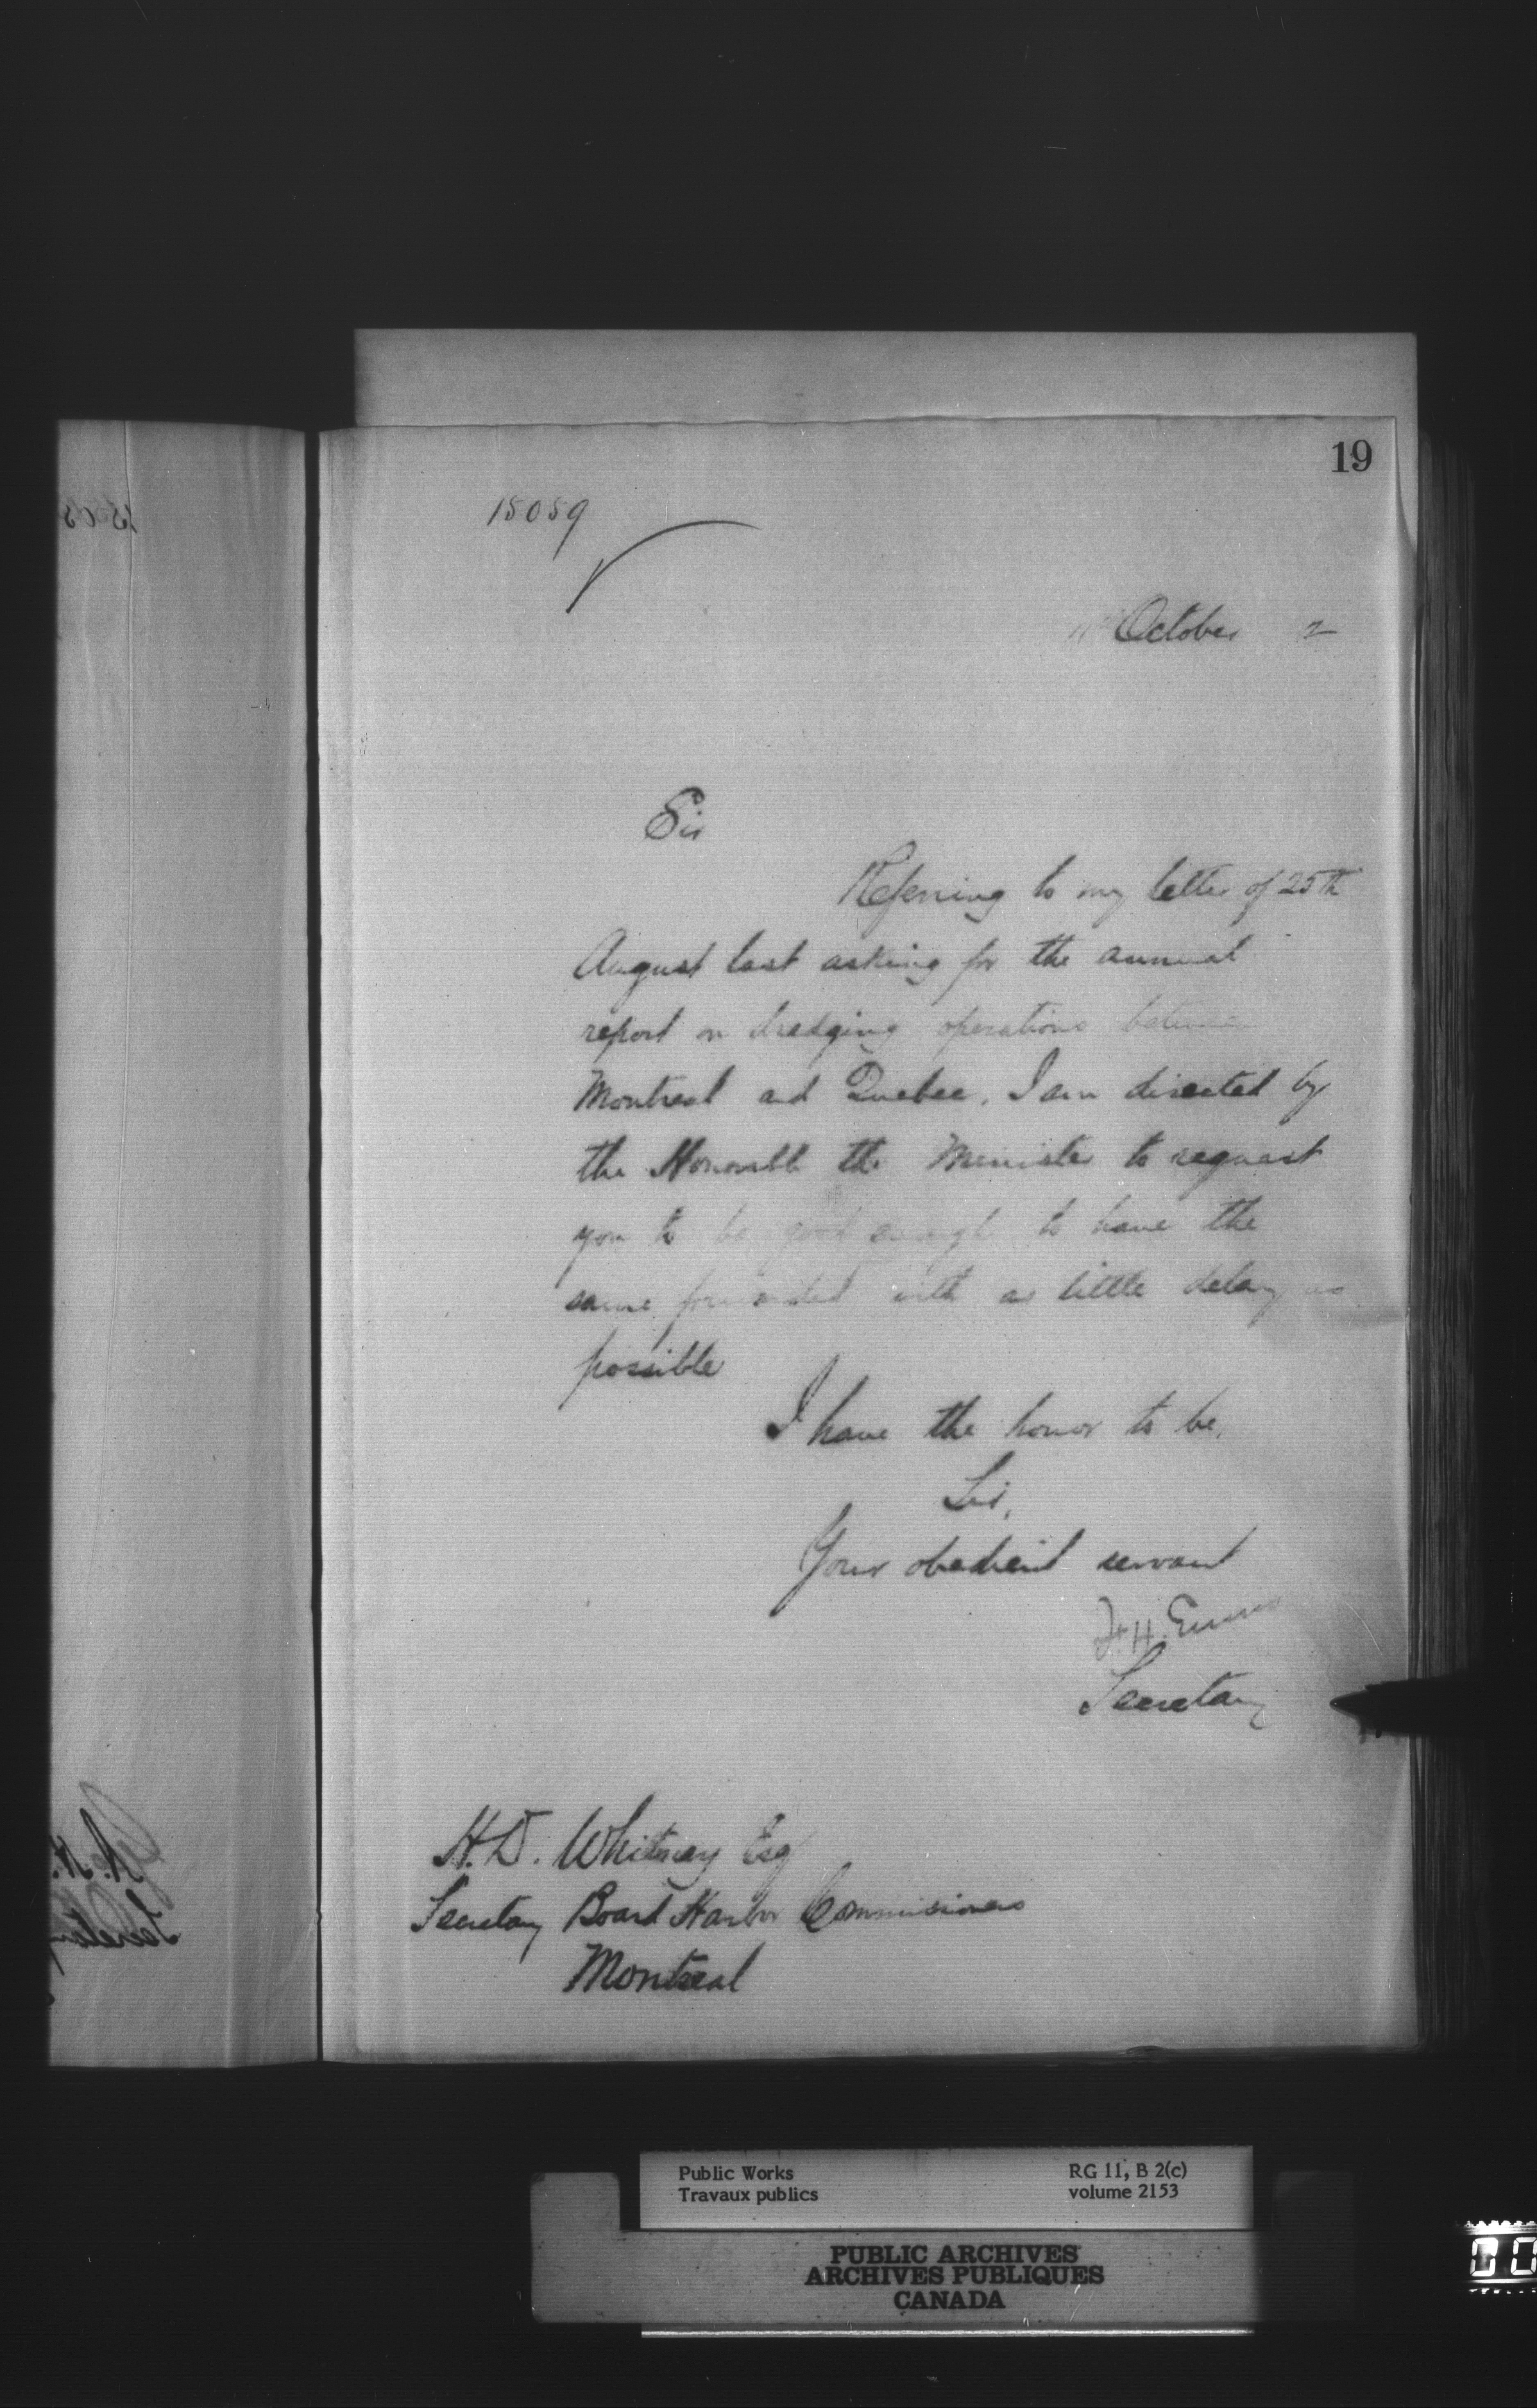 19
15059
October 2
Sir
Referring to my letter of 25th
August last asking for the annual
report on dredging operations between
Montreal and Quebec, I am directed by
the Honorable the Minister to request
you to be good enough to have the
same forwarded with as little delay as
possible
I have the honor to be,
Sir,
Your obedient servant
F. H. Ennis
Secretary
H. D. Whitney Esq
Secretary Board Harbor Commissioners
Montreal
Public Works
Travaux publics
RG 11, B 2(c)
volume 2153
PUBLIC ARCHIVES
ARCHIVES PUBLIQUES
CANADA